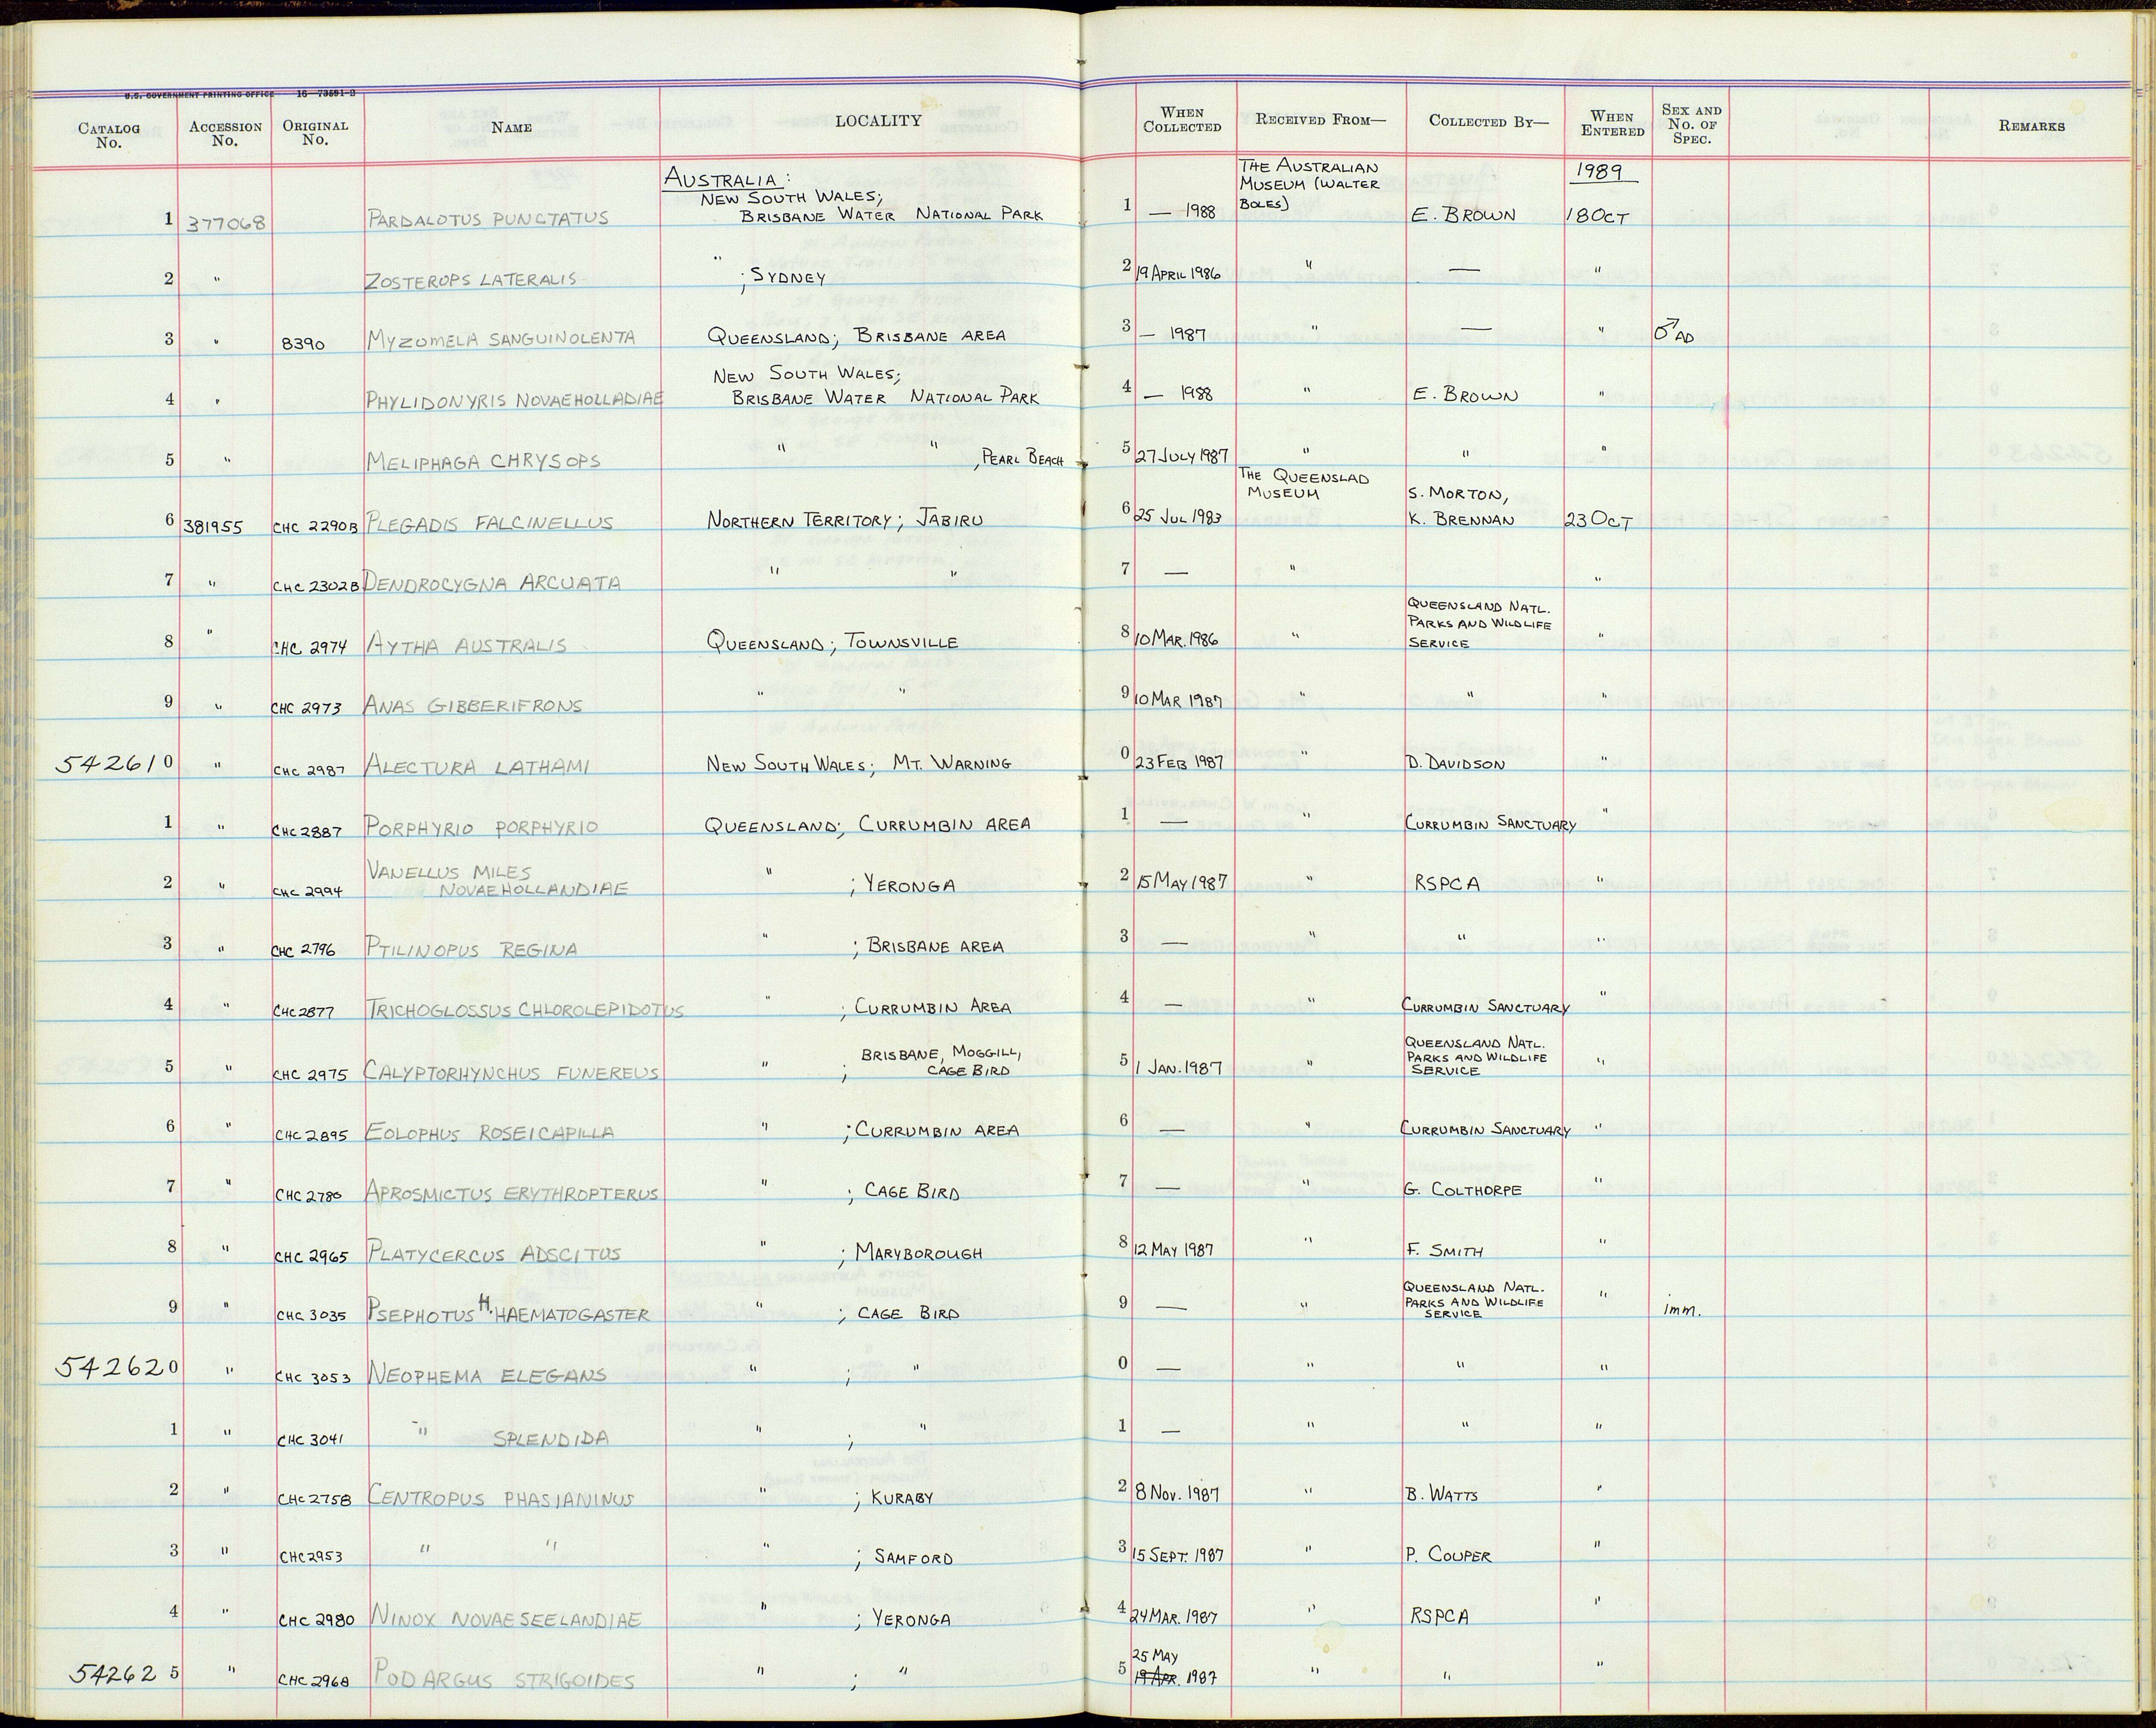 U.S. GOVERNMENT PRINTING OFFICE 16—73591-2
CATALOG No. ACCESSION No. ORIGINAL No. NAME LOCALITY WHEN COLLECTED RECEIVED FROM— COLLECTED BY— WHEN ENTERED SEX AND No. OF SPEC. REMARKS
AUSTRALIA: THE AUSTRALIAN MUSEUM (WALTER BOLES) 1989
1 377068 PARDALOTUS PUNCTATUS NEW SOUTH WALES; BRISBANE WATER NATIONAL PARK 1 — 1988 E. BROWN 18 OCT
2 " ZOSTEROPS LATERALIS " ; SYDNEY 2 19 APRIL 1986 " — "
3 " 8390 MYZOMELA SANGUINOLENTA QUEENSLAND; BRISBANE AREA 3 — 1987 " — " ♂ AD
4 " PHYLIDONYRIS NOVAEHOLLADIAE NEW SOUTH WALES; BRISBANE WATER NATIONAL PARK 4 — 1988 " E. BROWN "
5 " MELIPHAGA CHRYSOPS " " , PEARL BEACH 5 27 JULY 1987 " " "
6 381955 CHC 2290B PLEGADIS FALCINELLUS NORTHERN TERRITORY; JABIRU 6 25 JUL 1983 THE QUEENSLAD MUSEUM S. MORTON, K. BRENNAN 23 OCT
7 " CHC 2302B DENDROCYGNA ARCUATA " " 7 — " "
8 " CHC 2974 AYTHA AUSTRALIS QUEENSLAND; TOWNSVILLE 8 10 MAR. 1986 " QUEENSLAND NATL. PARKS AND WILDLIFE SERVICE "
9 " CHC 2973 ANAS GIBBERIFRONS " " 9 10 MAR 1987 " " "
542610 " CHC 2987 ALECTURA LATHAMI NEW SOUTH WALES; MT. WARNING 0 23 FEB 1987 " D. DAVIDSON "
1 " CHC 2887 PORPHYRIO PORPHYRIO QUEENSLAND; CURRUMBIN AREA 1 — " CURRUMBIN SANCTUARY "
2 " CHC 2994 VANELLUS MILES NOVAEHOLLANDIAE " ; YERONGA 2 15 MAY 1987 " RSPCA "
3 " CHC 2796 PTILINOPUS REGINA " ; BRISBANE AREA 3 — " " "
4 " CHC 2877 TRICHOGLOSSUS CHLOROLEPIDOTUS " ; CURRUMBIN AREA 4 — " CURRUMBIN SANCTUARY "
5 " CHC 2975 CALYPTORHYNCHUS FUNEREUS " ; BRISBANE, MOGGILL, CAGE BIRD 5 1 JAN. 1987 " QUEENSLAND NATL. PARKS AND WILDLIFE SERVICE "
6 " CHC 2895 EOLOPHUS ROSEICAPILLA " ; CURRUMBIN AREA 6 — " CURRUMBIN SANCTUARY "
7 " CHC 2786 APROSMICTUS ERYTHROPTERUS " ; CAGE BIRD 7 — " G. COLTHORPE "
8 " CHC 2965 PLATYCERCUS ADSCITUS " ; MARYBOROUGH 8 12 MAY 1987 " F. SMITH "
9 " CHC 3035 PSEPHOTUS H. HAEMATOGASTER " ; CAGE BIRD 9 — " QUEENSLAND NATL. PARKS AND WILDLIFE SERVICE " imm.
542620 " CHC 3053 NEOPHEMA ELEGANS " ; " 0 — " " "
1 " CHC 3041 " SPLENDIDA " ; " 1 — " " "
2 " CHC 2758 CENTROPUS PHASIANINUS " ; KURABY 2 8 NOV. 1987 " B. WATTS "
3 " CHC 2953 " " " ; SAMFORD 3 15 SEPT. 1987 " P. COUPER "
4 " CHC 2980 NINOX NOVAESEELANDIAE " ; YERONGA 4 24 MAR. 1987 " RSPCA "
542625 " CHC 2968 PODARGUS STRIGOIDES " ; " 5 25 MAY 19 APR. 1987 " " "